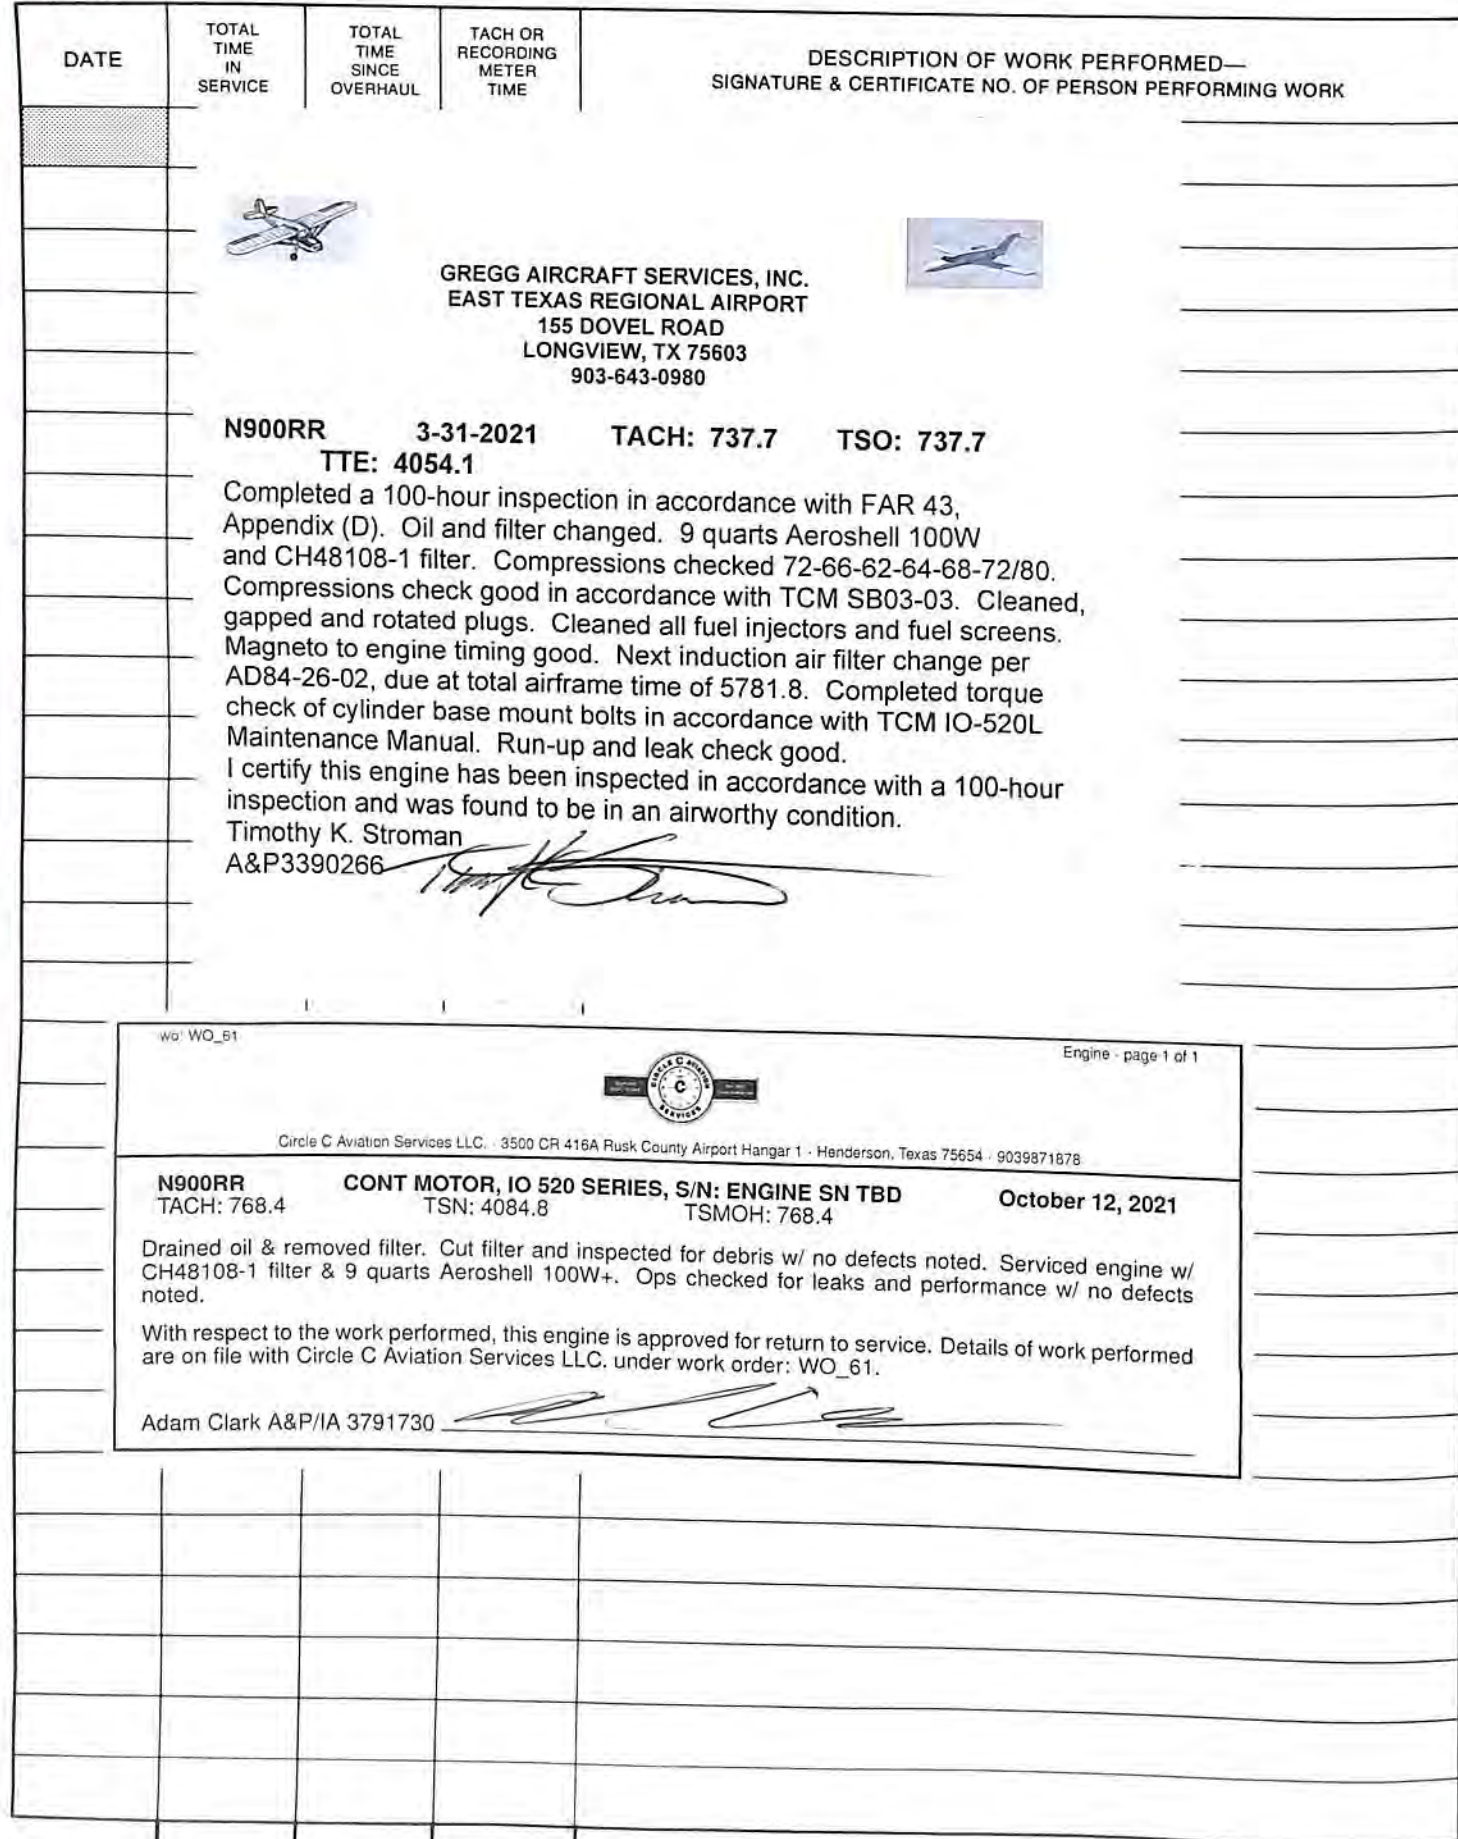 DATE
TOTAL
TIME
IN
SERVICE
TOTAL
TIME
SINCE
OVERHAUL
TACH OR
RECORDING
METER
TIME
DESCRIPTION OF WORK PERFORMED—
SIGNATURE & CERTIFICATE NO. OF PERSON PERFORMING WORK
GREGG AIRCRAFT SERVICES, INC.
EAST TEXAS REGIONAL AIRPORT
155 DOVEL ROAD
LONGVIEW, TX 75603
903-643-0980
N900RR 3-31-2021 TACH: 737.7 TSO: 737.7
TTE: 4054.1
Completed a 100-hour inspection in accordance with FAR 43,
Appendix (D). Oil and filter changed. 9 quarts Aeroshell 100W
and CH48108-1 filter. Compressions checked 72-66-62-64-68-72/80.
Compressions check good in accordance with TCM SB03-03. Cleaned,
gapped and rotated plugs. Cleaned all fuel injectors and fuel screens.
Magneto to engine timing good. Next induction air filter change per
AD84-26-02, due at total airframe time of 5781.8. Completed torque
check of cylinder base mount bolts in accordance with TCM IO-520L
Maintenance Manual. Run-up and leak check good.
I certify this engine has been inspected in accordance with a 100-hour
inspection and was found to be in an airworthy condition.
Timothy K. Stroman
A&P3390266
wo: WO_61
Engine - page 1 of 1
CIRCLE C AVIATION
C
SERVICES
Circle C Aviation Services LLC. - 3500 CR 416A Rusk County Airport Hangar 1 - Henderson, Texas 75654 - 9039871878
N900RR CONT MOTOR, IO 520 SERIES, S/N: ENGINE SN TBD October 12, 2021
TACH: 768.4 TSN: 4084.8 TSMOH: 768.4
Drained oil & removed filter. Cut filter and inspected for debris w/ no defects noted. Serviced engine w/
CH48108-1 filter & 9 quarts Aeroshell 100W+. Ops checked for leaks and performance w/ no defects
noted.
With respect to the work performed, this engine is approved for return to service. Details of work performed
are on file with Circle C Aviation Services LLC. under work order: WO_61.
Adam Clark A&P/IA 3791730